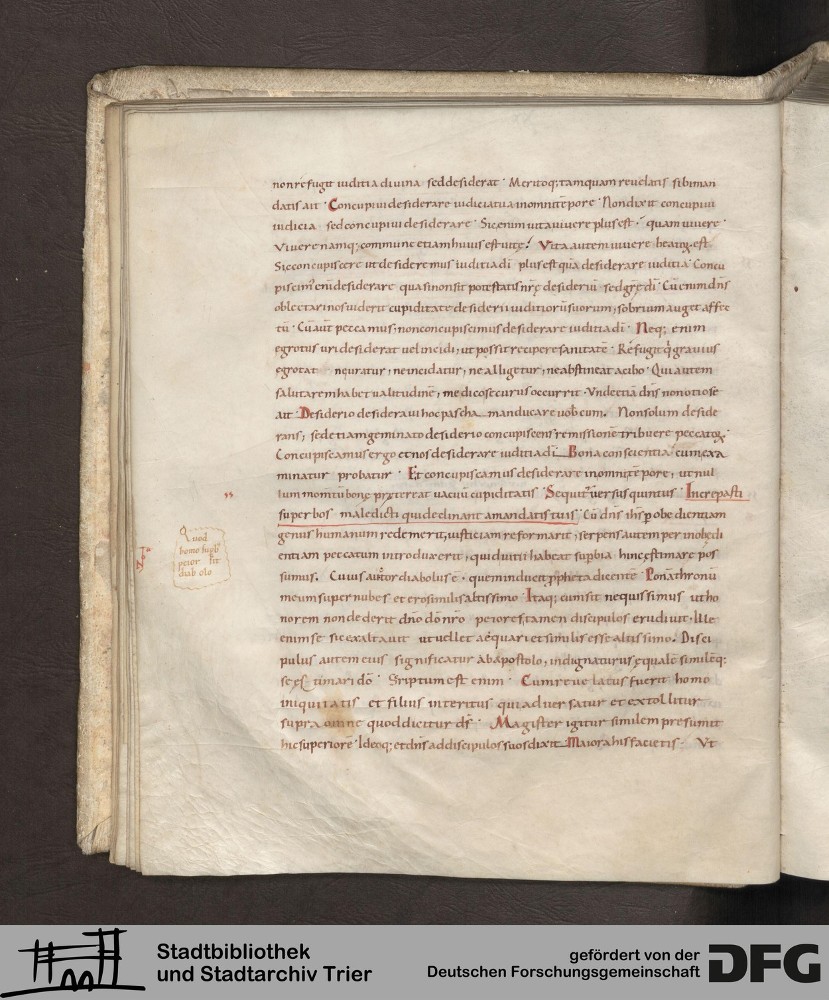 non refugit iuditia diuina sed desiderat · Meritoq; tamquam reuelatis sibi man
datis ait · Concupiui desiderare iudicia tua in omni tēpore · Non dixit concupiui
iudicia sed concupiui desiderare · Sic enim uita uiuere plus est · quam uiuere ·
Viuere namq; commune etiam huius est uitę · Vita autem uiuere beatoꝝ est
Sic concupiscere ut desideremus iuditia dī plus est quā desiderare iuditia · Concu
piscim' enī desiderare quasi non sit potestatis nrę desideriū sed grę dī · Cū enim dns
oblectari nos uiderit cupiditate desiderii iuditiorū suorum, sobrium auget affec
tū · Cū aut peccamus, non concupiscimus desiderare iuditia dī · Neq; enim
egrotus uri desiderat uel incidi, ut possit recipere sanitatē · Refugit q grauius
egrotat ne uratur, ne incidatur, ne alligetur, ne abstineat a cibo · Qui autem
salutarem habet ualitudinē, medicos securus occurrit · Vnde etiā dns non otiose
ait · Desiderio desideraui hoc pascha manducare uobcum · Non solum deside
rans, sed etiam geminato desiderio concupiscens remissionē tribuere peccatoꝝ ·
Concupiscamus ergo et nos desiderare iuditia dī Bona conscientia cum exa
minatur probatur · Et concupiscamus desiderare in omni tēpore, ut nul
lum momtū bonę prętereat uacuū cupiditatis · Sequit uersus quintus · Increpasti
superbos maledicti qui declinant a mandatis tuis · Cū dns ihs p obedientiam
genus humanum redemerit, iustitiam reformarit, serpens autem per inobędi
entiam peccatum introduxerit, qui diuitii habeat supbia hinc ęstimare pos
sumus. Cuius auctor diabolus ē · quem inducit ppheta dicentē · Ponā thronū
meum super nubes et ero similis altissimo · Itaq; cum sit nequissimus ut ho
norem non dederit dnō dō nrō peiores tamen discipulos erudiuit · Ille
enim se sic exaltauit ut uellet aequari et similis esse altissimo. Disci
pulus autem eius significatur ab apostolo, indignaturus ęqualē similēq;
se
iniquitatis et filius interitus qui aduersatur et extollitur
supra omne quod dicitur ds · Magister igitur similem presumit
hic superiorē · Ideoq; et dns ad discipulos suos dixit Maiora his facietis · Vt
Quod
homo supb
peior sit
diabolo